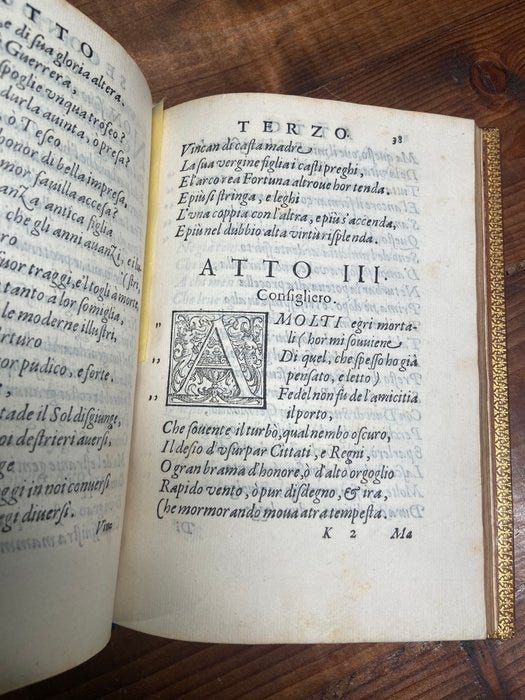 TTO
e di sua gloria altera.
Guerrera,
spoglie vnqua trofeo?
durla auinta, ò presa?
ò Teseo
honor di bella impresa,
mor fauilla accesa?
anza antica figlia
che gli anni auanzi, e i lu
(stri,
uor traggi, e togli a morte,
tanto a lor somiglia,
le moderne illustri,
Arturo
or pudico, e forte.
tade il Sol disgiunge,
oi destrieri auersi,
ge
aggi in noi conuersi
egi diuersi.
Vin
TERZO.
38
Vincan di casta madre
La sua vergine figlia i casti preghi,
E l'arco rea Fortuna altroue hor tenda.
E più stringa, e leghi
L'vna coppia con l'altra, e più s'accenda,
E più nel dubbio alta virtù risplenda.
ATTO III.
Consigliero.
„ A MOLTI egri morta-
li (hor mi souuiene
„ Di quel, che spesso ho già
pensato, e letto)
„ Fedel non fu de l'amicitia
il porto,
Che souente il turbò, qual nembo oscuro,
Il desio d'vsurpar Cittati, e Regni,
O gran brama d'honore, ò d'alto orgoglio
Rapido vento, ò pur disdegno, & ira,
Che mormorando moua atra tempesta.
K 2 Ma